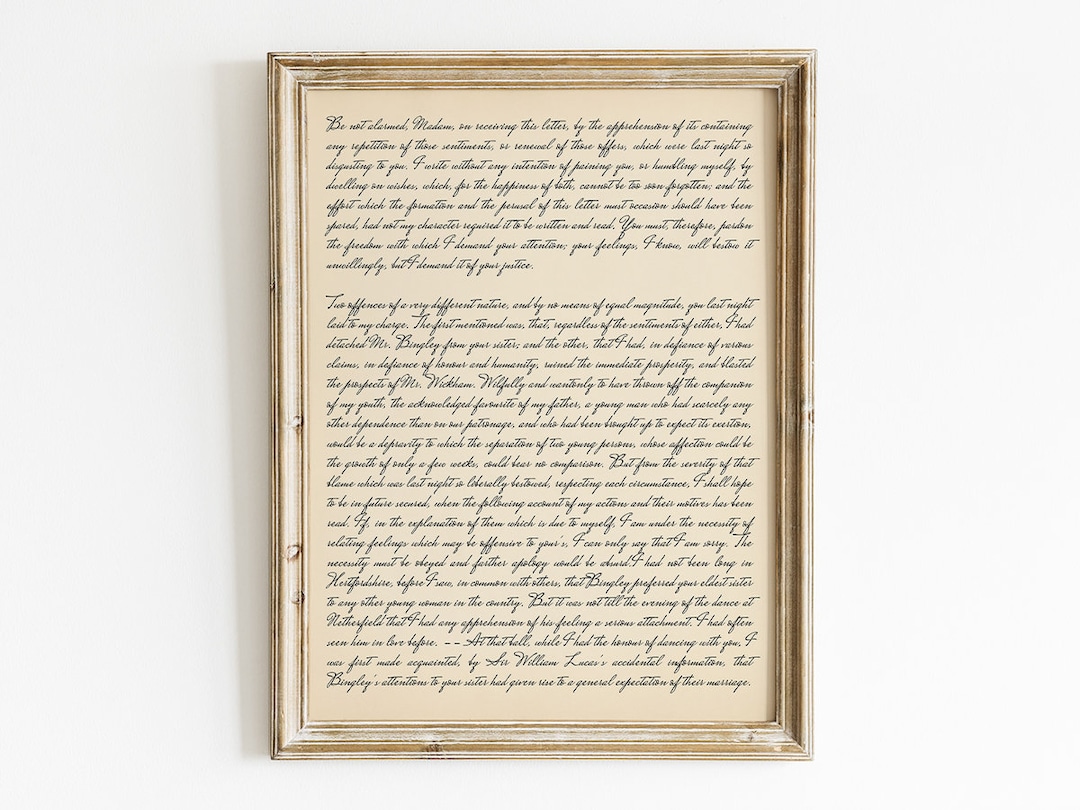 Be not alarmed, Madam, on receiving this letter, by the apprehension of its containing
any repetition of those sentiments, or renewal of those offers, which were last night so
disgusting to you. I write without any intention of paining you, or humbling myself, by
dwelling on wishes, which, for the happiness of both, cannot be too soon forgotten; and the
effort which the formation and the perusal of this letter must occasion should have been
spared, had not my character required it to be written and read. You must, therefore, pardon
the freedom with which I demand your attention; your feelings, I know, will bestow it
unwillingly, but I demand it of your justice.

Two offences of a very different nature, and by no means of equal magnitude, you last night
laid to my charge. The first mentioned was, that, regardless of the sentiments of either, I had
detached Mr. Bingley from your sister; and the other, that I had, in defiance of various
claims, in defiance of honour and humanity, ruined the immediate prosperity, and blasted
the prospects of Mr. Wickham. Wilfully and wantonly to have thrown off the companion
of my youth, the acknowledged favourite of my father, a young man who had scarcely any
other dependence than on our patronage, and who had been brought up to expect its exertion,
would be a depravity to which the separation of two young persons, whose affection could be
the growth of only a few weeks, could bear no comparison. But from the severity of that
blame which was last night so liberally bestowed, respecting each circumstance, I shall hope
to be in future secured, when the following account of my actions and their motives has been
read. If, in the explanation of them which is due to myself, I am under the necessity of
relating feelings which may be offensive to your's, I can only say that I am sorry. The
necessity must be obeyed and farther apology would be absurd. I had not been long in
Hertfordshire, before I saw, in common with others, that Bingley preferred your eldest sister
to any other young woman in the country. But it was not till the evening of the dance at
Netherfield that I had any apprehension of his feeling a serious attachment. I had often
seen him in love before. -- At that ball, while I had the honour of dancing with you, I
was first made acquainted, by Sir William Lucas's accidental information, that
Bingley's attentions to your sister had given rise to a general expectation of their marriage.